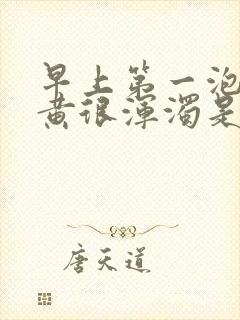 早上第一泡
黄很浑浊是
唐天道